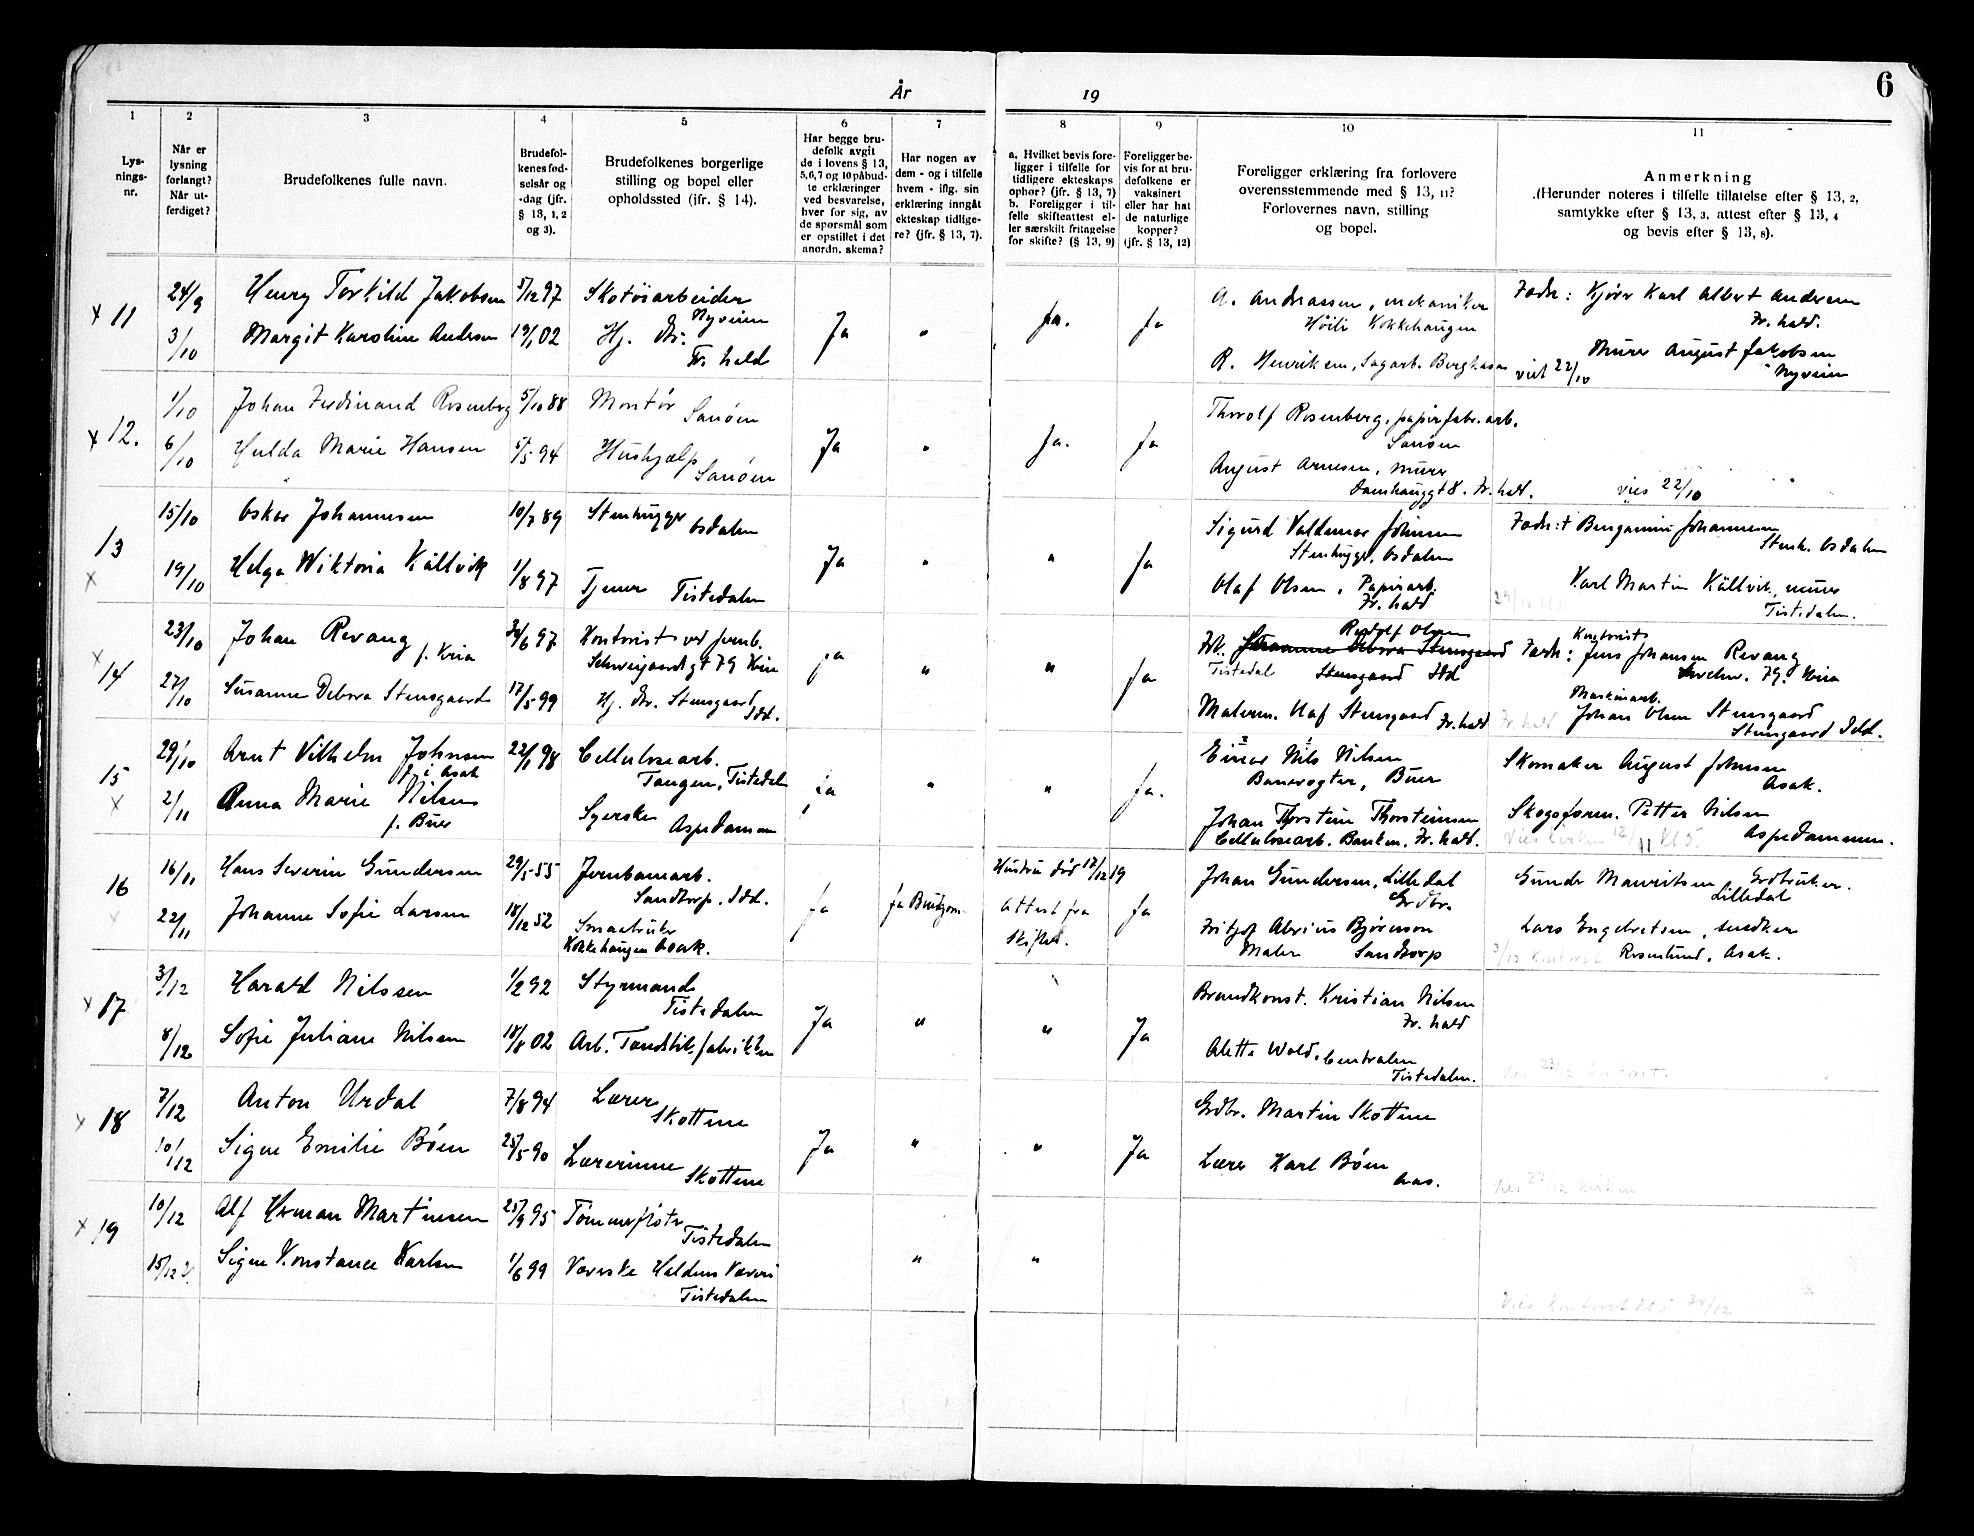 6
År 19
1 2 3 4 5 6 7 8 9 10 11
Lys-
nings-
nr.
Når er
lysning
forlangt?
Når ut-
ferdiget?
Brudefolkenes fulle navn.
Brudefol-
kenes fød-
selsår og
-dag (jfr.
§ 13, 1, 2
og 3).
Brudefolkenes borgerlige
stilling og bopel eller
opholdssted (ifr. § 14).
Har begge bru-
defolk avgit
de i lovens § 13,
5,6,7 og 10 påbud-
te erklæringer
ved besvarelse,
hver for sig, av
de spørsmål som
er opstillet i det
anordn. skema?
Har nogen av
dem - og i tilfelle
hvem - iflg. sin
erklæring inngåt
ekteskap tidlige-
re? (jfr. § 13, 7).
a. Hvilket bevis fore-
ligger i tilfelle for
tidligere ekteskaps
ophør? (jfr. § 13, 7)
b. Foreligger i til-
felle skifteattest el-
ler særskilt fritagelse
for skifte? (§ 13, 9)
Foreligger be-
vis for at bru-
defolkene er
vaksinert
eller har hat
de naturlige
kopper?
(jfr. § 13, 12)
Foreligger erklæring fra forlovere
overensstemmende med § 13, 11?
Forlovernes navn, stilling
og bopel.
Anmerkning
(Herunder noteres i tilfelle tillatelse efter § 13, 2,
samtykke efter § 13, 3, attest efter § 13, 4
og bevis efter § 13, 8).
x 11 24/9 Henry Torkild Jakobsen 5/12 97 Skotöiarbeider
Nyveien
3/10 Margit Karoline Andersen 19/1 02 Hj. do.
Fr. hald
Ja " Ja. Ja
A. Andreassen, mekaniker
Höili Kokkehaugen
R. Henriksen, Sagarb. Berghasen
Fadr: Kjörer Karl Albert Andersen
Fr. hald.
Murer August Jakobsen
Nyveien
viet 22/10
x 12. 1/10 Johan Ferdinand Rosenberg 5/10 88 Montör
Sanöen
6/10 Hulda Marie Hansen 5/5 94 Hushjælp
Sanöen
Ja " Ja. Ja
Thorolf Rosenberg, papirfabr. arb.
Sanöen
August Arnesen, murer
Damhauggt 8. Fr. hald.
vies 22/10
13 x 15/10 Oskar Johannesen 10/7 89 Stenhugger
Osdalen
19/10 Helga Wiktoria Källvik 1/8 97 Tjener Tistedalen
Ja " " Ja
Sigurd Valdemar Johnsen
Stenhugger, Osdalen
Olaf Olsen, Papirarb.
Fr. hald
Fadr: † Bengamin Johannesen
Stenh. Osdalen
Karl Martin Källvik, murer
Tistedalen.
x 14 23/10 Johan Revang
f. Kria
30/6 97 Kontorist ved jernb.
Schweigaardsgt 79 Kria
27/10 Susanne Debora Stensgaard 17/5 99 Hj. do. Stensgaard
Idd.
Ja " " Ja
Rudolf Olsen
Frk. Susanne Debora Stensgaard
Tistedal Stensgaard Idd
Malerm. Olaf Stensgaard Fr. hald
Kontorist
Fadr: Jens Johansen Revang
Schw. 79. Kria
Maskinarb.
Johan Olsen Stensgaard
Stensgaard Idd.
15 x 29/10 Arnt Vilhelm Johnsen
f. i Asak
22/1 98 Cellulosearb.
Tangen, Tistedalen
2/11 Anna Marie Nilsen
f. Buer
Syerske
Aspedammen
Ja " " Ja.
Einar Nils Nilsen
Banevogter, Buer
Johan Thorstein Thorsteinsen
Cellulosearb. Banken, Fr. hald.
Skomaker August Johnsen
Asak.
Skogsforem. Petter Nilsen
Aspedammen.
Vies kirken 12/11 kl 5.
16 x 16/11 Hans Severin Gundersen 29/5 55 Jernbanearb.
Sandtorp. Idd.
22/11 Johanne Sofie Larsen 18/12 52 Smaabruker
Kokkehaugen Asak.
Ja Ja Brudgom.
Hustru död 17/12 19
Attest fra
Skiftet.
Ja
Johan Gundersen, Lilledal
Grdbr.
Fritjof Alvius Björnson
Maler Sandtorp
Gunder Mauritsen, Grdbruker.
Lilledal
Lars Engebretsen, snedker
Rosenlund, Asak.
3/12 Kontoret
x 17 3/12 Harald Nilssen 1/2 92 Styrmand
Tistedalen
8/12 Sofie Juliane Nilsen 18/8 02 Arb. Tændstikfabrikken
Ja " " Ja
Brandkonst. Kristian Nilsen
Fr. hald
Alette Wold, Centralen
Tistedalen.
Vies 23/12 Kontoret.
x 18 7/12 Anton Urdal 7/8 94 Lærer
Skottene
10/12 Signe Emilie Böen 25/5 90 Lærerinne
Skottene
Ja " " Ja
Grdbr. Martin Skottene
Lærer Karl Böen
Aas.
Vies 27/12 kirken
x 19 10/12 Alf Herman Martinsen 25/9 95 Tömmerflöter
Tistedalen
15/12 Signe Konstance Karlsen 1/6 99 Væverske Haldens Væveri
Tistedalen
" "
Vies Kontoret kl 5 30/12